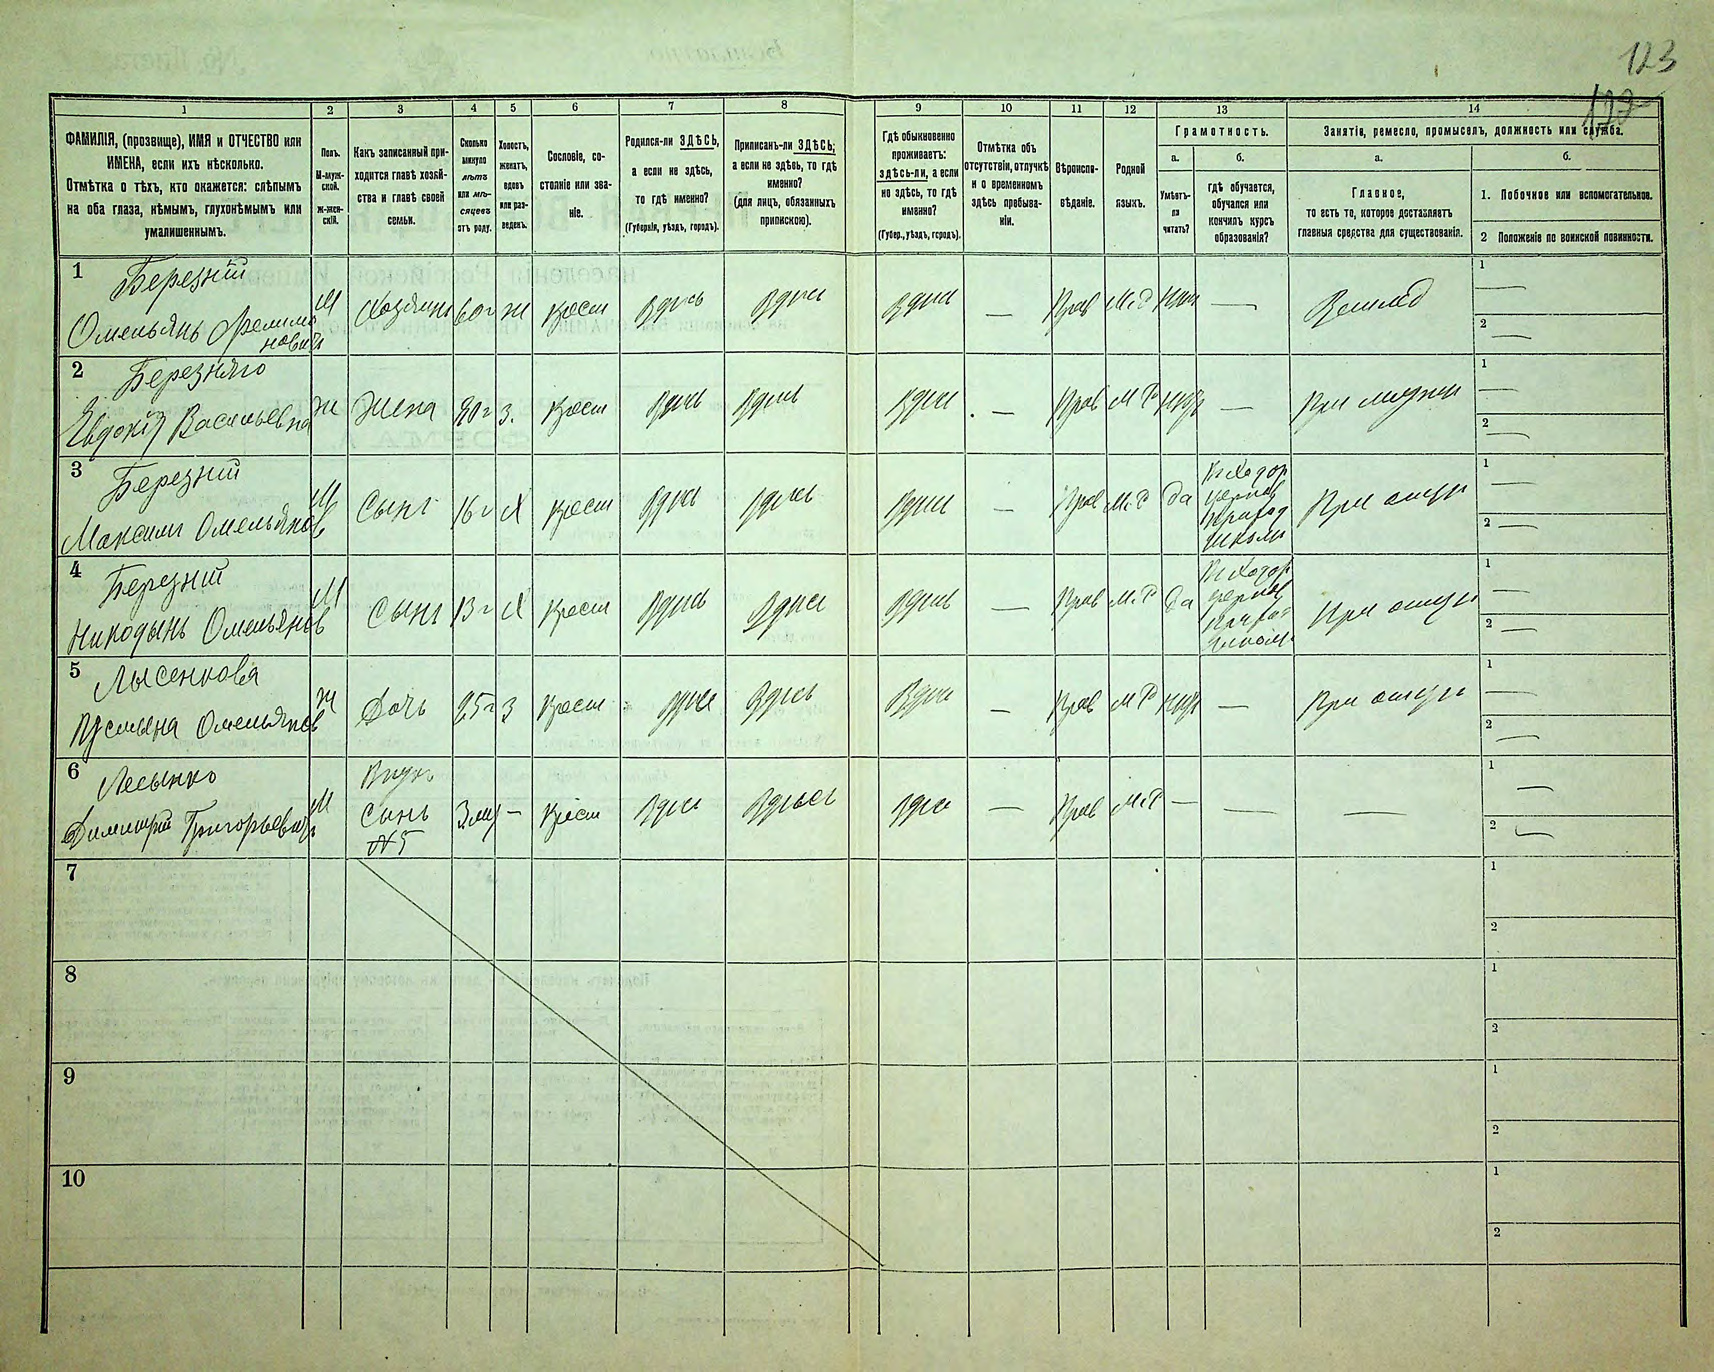 123
122
1 2 3 4 5 6 7 8 9 10 11 12 13 14
ФАМИЛІЯ, (прозвище), ИМЯ и ОТЧЕСТВО или
ИМЕНА, если ихъ нѣсколько.
Отмѣтка о тѣхъ, кто окажется: слѣпымъ
на оба глаза, нѣмымъ, глухонѣмымъ или
умалишеннымъ.
Полъ.
М-муж-
ской.
Ж-жен-
скій.
Какъ записанный при-
ходится главѣ хозяй-
ства и главѣ своей
семьи.
Сколько
минуло
лѣтъ
или мѣ-
сяцевъ
отъ роду.
Холостъ,
женатъ,
вдовъ
или раз-
веденъ.
Сословіе, со-
стояніе или зва-
ніе.
Родился-ли ЗДѢСЬ,
а если не здѣсь,
то гдѣ именно?
(Губернія, уѣздъ, городъ).
Приписанъ-ли ЗДѢСЬ;
а если не здѣсь, то гдѣ
именно?
(для лицъ, обязанныхъ
припискою).
Гдѣ обыкновенно
проживаетъ:
здѣсь-ли, а если
не здѣсь, то гдѣ
именно?
(Губер., уѣздъ, городъ).
Отмѣтка объ
отсутствіи, отлучкѣ
и о временномъ
здѣсь пребыва-
ніи.
Вѣроиспо-
вѣданіе.
Родной
языкъ.
Грамотность.
а.
Умѣетъ-
ли
читать?
б.
гдѣ обучается,
обучался или
кончилъ курсъ
образованія?
Занятіе, ремесло, промыселъ, должность или служба.
а.
Главное,
то есть то, которое доставляетъ
главныя средства для существованія.
б.
1. Побочное или вспомогательное.
2 Положеніе по воинской повинности.
1 Березній
Омельянъ Филимо
новичъ
М Хозяинъ 60 г ж крест Здѣсь Здѣсь Здѣсь — Прав М.Р нѣтъ —
1 —
2 —
2 Березняго
Евдокія Васильевна
Ж Жена з. крест Здѣсь Здѣсь Здѣсь — Прав М Р нѣтъ — При мужи
1 —
2 —
3 Березній
Максимъ Омельянов
М Сынъ 16 г Х крест Здѣсь Здѣсь Здѣсь — Прав М.Р да
При отцу
1 —
2 —
4 Березній
Никодымъ Омельянов
М Сынъ 13 г Х крест Здѣсь Здѣсь Здѣсь — Прав М.Р да
При отцу
1 —
2 —
5 Лысенкова
Устына Омельянов
Ж Дочь 25 г з крест Здѣсь Здѣсь Здѣсь — Прав М Р нѣтъ — При отцу
1 —
2 —
6 Лесынко
Димитрій Григорьевичъ
М Внукъ
Сынъ
№5
— крест Здѣсь Здѣсь Здѣсь — Прав М.Р — — —
1 —
2 —
7
1
2
8
1
2
9
1
2
10
1
2